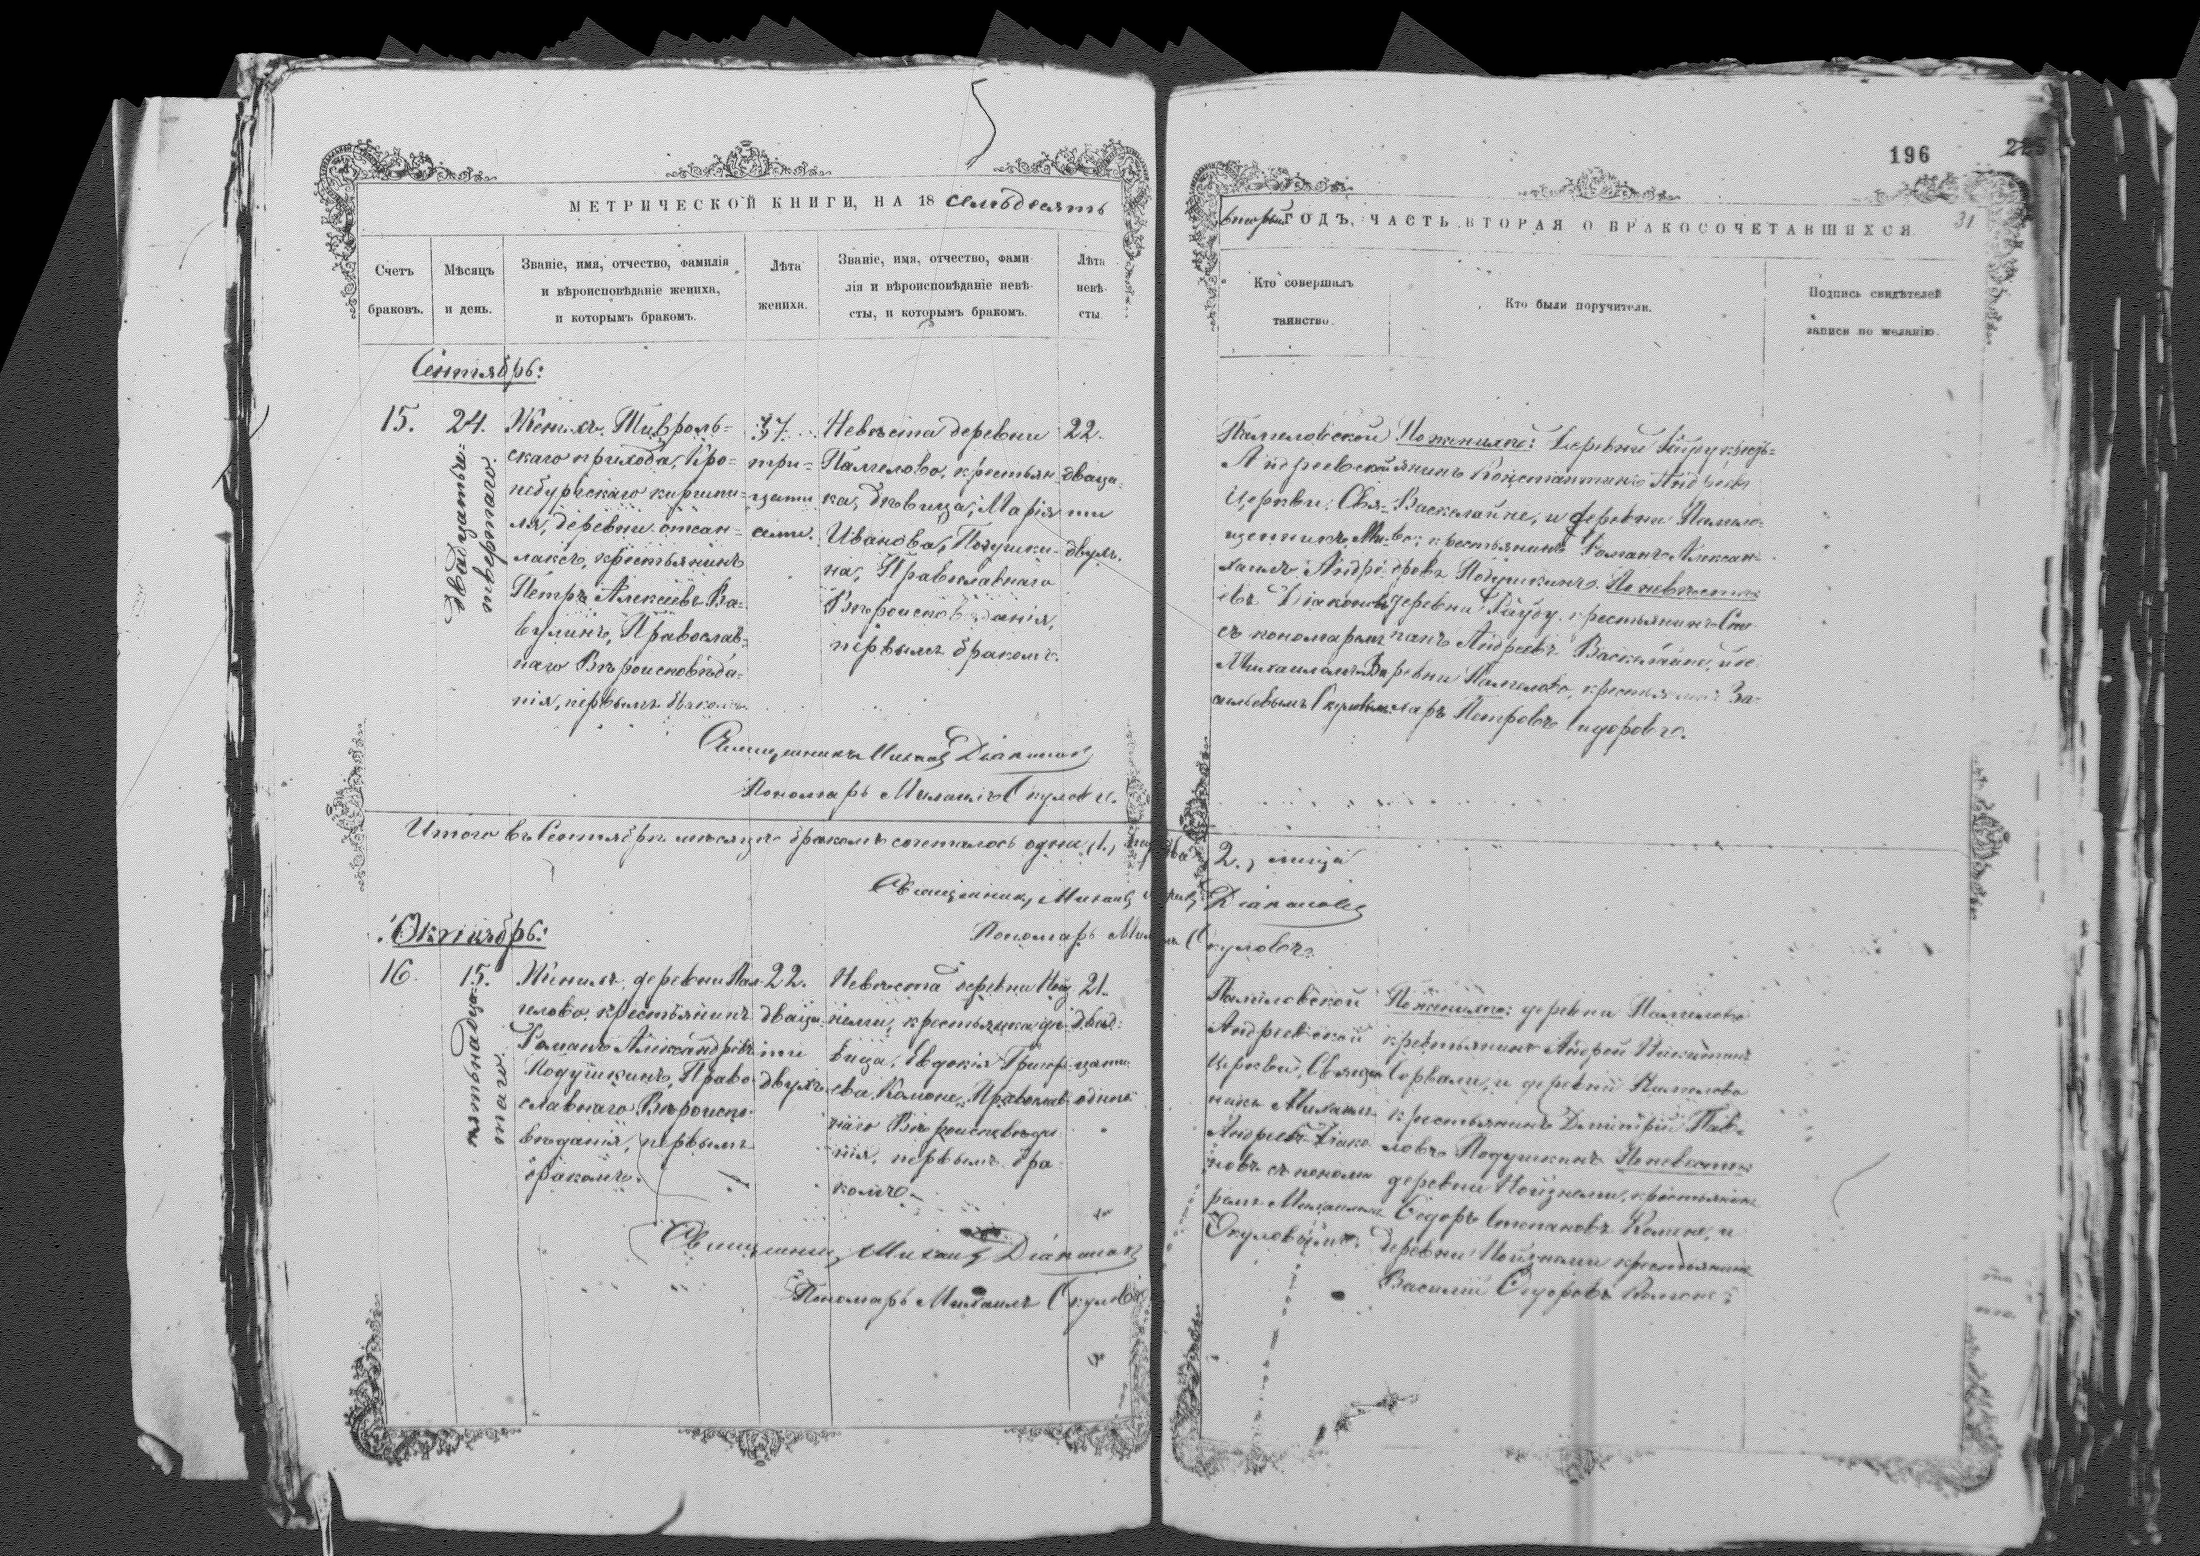 196
31
МЕТРИЧЕСКОЙ КНИГИ, НА 18 семьдесятъ
вторый ГОДЪ, ЧАСТЬ ВТОРАЯ О БРАКОСОЧЕТАВШИХСЯ
Счетъ
браковъ.
Мѣсяцъ
и день.
Званіе, имя, отчество, фамилія
и вѣроисповѣданіе жениха,
и которымъ бракомъ.
Лѣта
жениха.
Званіе, имя, отчество, фами-
лія и вѣроисповѣданіе невѣ-
сты, и которымъ бракомъ.
Лѣта
невѣ-
сты
Кто совершалъ
таинство.
Кто были поручители.
Подпись свидѣтелей
записи по желанію.
Сентябрь:
15.
24.
двадцать
четвертаго
Женихъ, Тивроль-
скаго прихода, Кро-
небургскаго кирхшпи-
ля, деревни
лаксъ, крестьянинъ
Петръ Алексѣевъ Ва-
вулинъ, Православ-
наго Вѣроисповѣда-
нія, первымъ бракомъ.
37.
три-
цати
семи.
Невѣста деревни
Палгелово, крестьян-
ка, дѣвица, Марія
Иванова, Подушки-
на, Православнаго
Вѣроисповѣданія,
первымъ бракомъ.
22.
дваца-
ти
двухъ.
Андреевской
Церкви, Свя-
щенникъ Ми-
хаилъ Андре-
евъ Діаконовъ
съ пономаремъ
Михаиломъ Ва-
сильевымъ Окуловымъ.
По женихѣ: деревни
Константинъ Андреевъ
Васкелайне, и деревни Палгело-
во, крестьянинъ Романъ Алексан-
дровъ Подушкинъ. По невѣстѣ
деревни крестьянинъ Сте-
панъ Андреевъ Васкелайне, и де-
ревни Палгелово, крестьянинъ За-
харъ Петровъ Сидоровъ.
Священникъ Михаилъ Діаконовъ
Пономарь Михаилъ Окуловъ.
Итого въ Сентябрѣ мѣсяцѣ бракомъ сочеталось одна (1.) два (2.) лица
Священникъ Михаилъ Діаконовъ
Пономарь Михаилъ Окуловъ.
Октябрь:
16.
15.
пятнадца-
таго
Женихъ, деревни Пал-
гелово, крестьянинъ
Романъ Александровъ
Подушкинъ, Право-
славнаго Вѣроиспо-
вѣданія, первымъ
бракомъ.
22.
дваца-
ти
двухъ
Невѣста деревни
крестьянка дѣ-
вица, Евдокія Григорь-
ева Комоне, Православ-
наго Вѣроисповѣда-
нія, первымъ бра-
комъ.
21.
двад-
цати
одинъ
Палгеловской
Андреевской
Церкви, Священ-
никъ Михаилъ
Андреевъ Діако-
новъ съ понома-
ремъ Михаиломъ
Окуловымъ.
По женихѣ: деревни Палгелово
крестьянинъ Андрей Никитинъ
и деревни Палгелово
крестьянинъ Димитрій Пав-
ловъ Подушкинъ. По невѣстѣ
деревни крестьянинъ
Ѳедоръ Степановъ Комоне, и
деревни крестьянинъ
Василій Ѳедоровъ Комоне.
Священникъ Михаилъ Діаконовъ
Пономарь Михаилъ Окуловъ